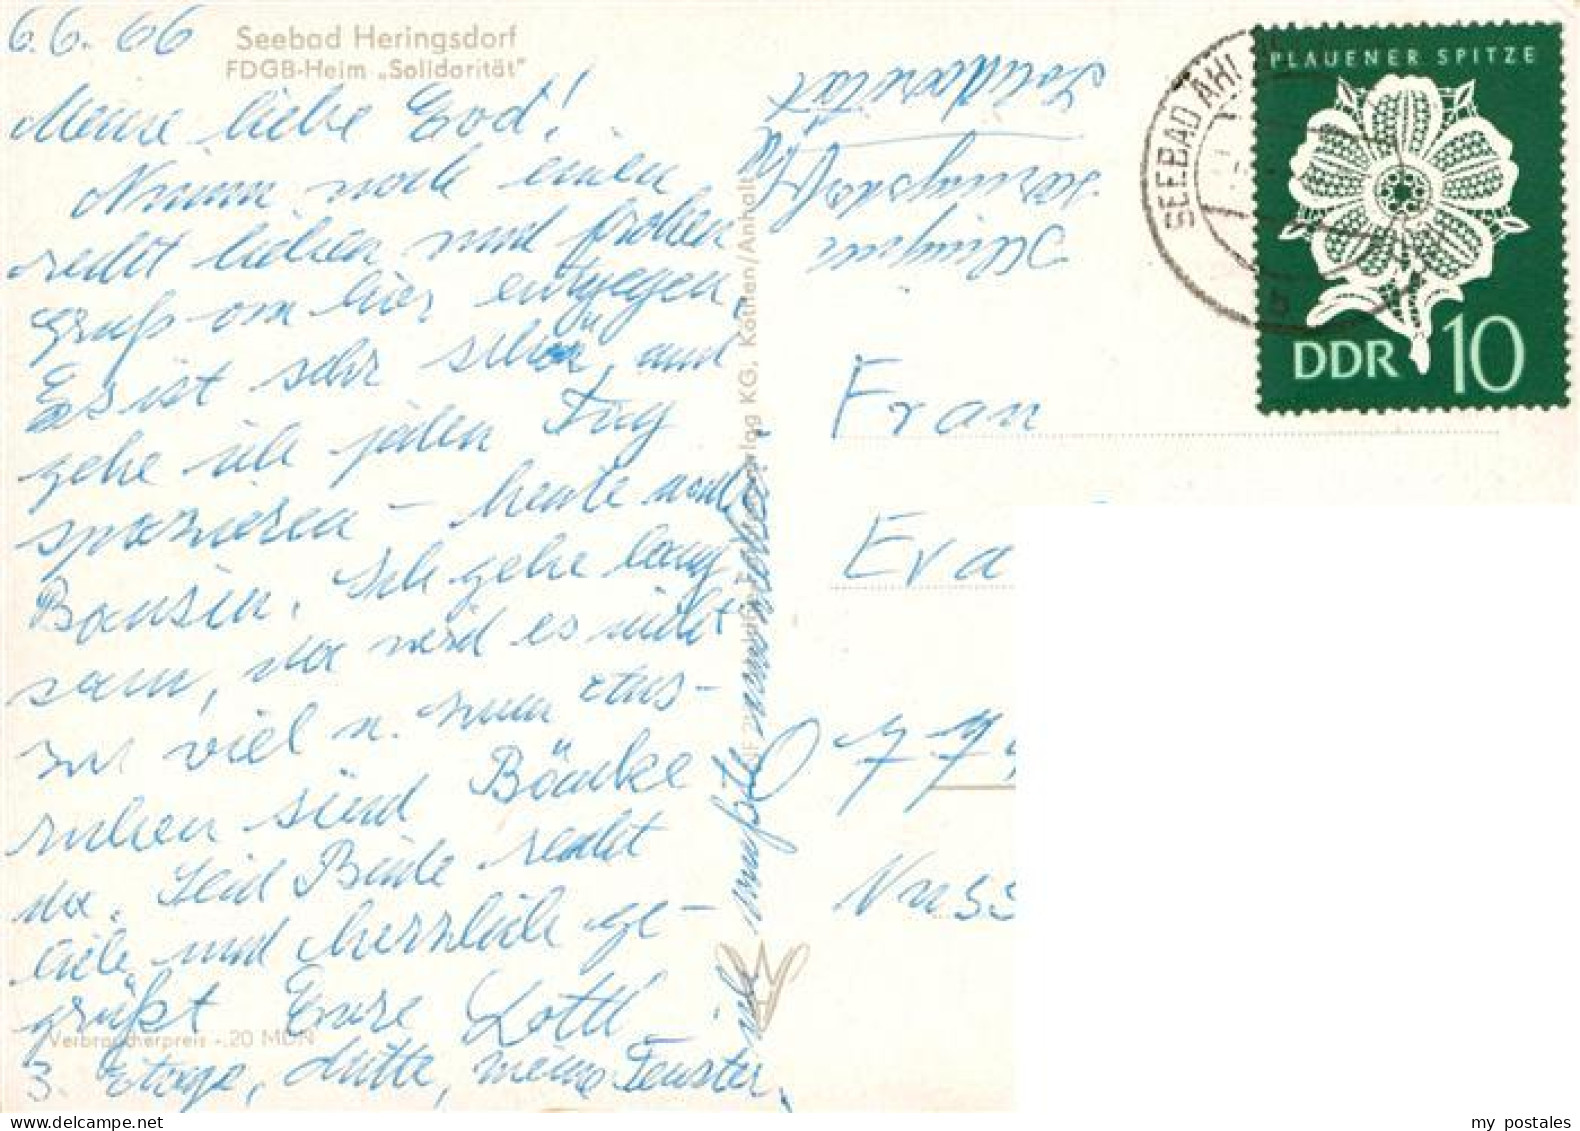 6.6.66
Seebad Heringsdorf
FDGB-Heim „Solidarität"
Meine liebe God!
Nimm noch einen
recht lieben und frohen
Gruß von hier entgegen,
Es ist sehr schön und
gehe ich jeden Tag
spazieren - heute nach
Bansin. Ich gehe lang
sam, da wird es nicht
zu viel u. zum Aus-
ruhen sind Bänke
da. Seid Beide recht
lieb und herzlich ge-
grüßt Eure Lottl
Verbraucherpreis -.20 MDN
3. Etage, Mitte, meine Fenster,
ich mußte
KG, Köthen/Anhalt
Heringsdorf
Solidarität
SEEBAD AHL
b
PLAUENER SPITZE
DDR 10
Frau
Eva
Nuss
my postales